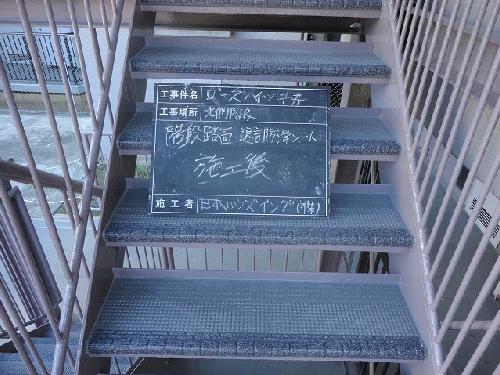 工事件名 ローズハイツ
工事場所 北側階段
階段踏面 防滑シート
施工後
施工者 日本ハウズイング(株)